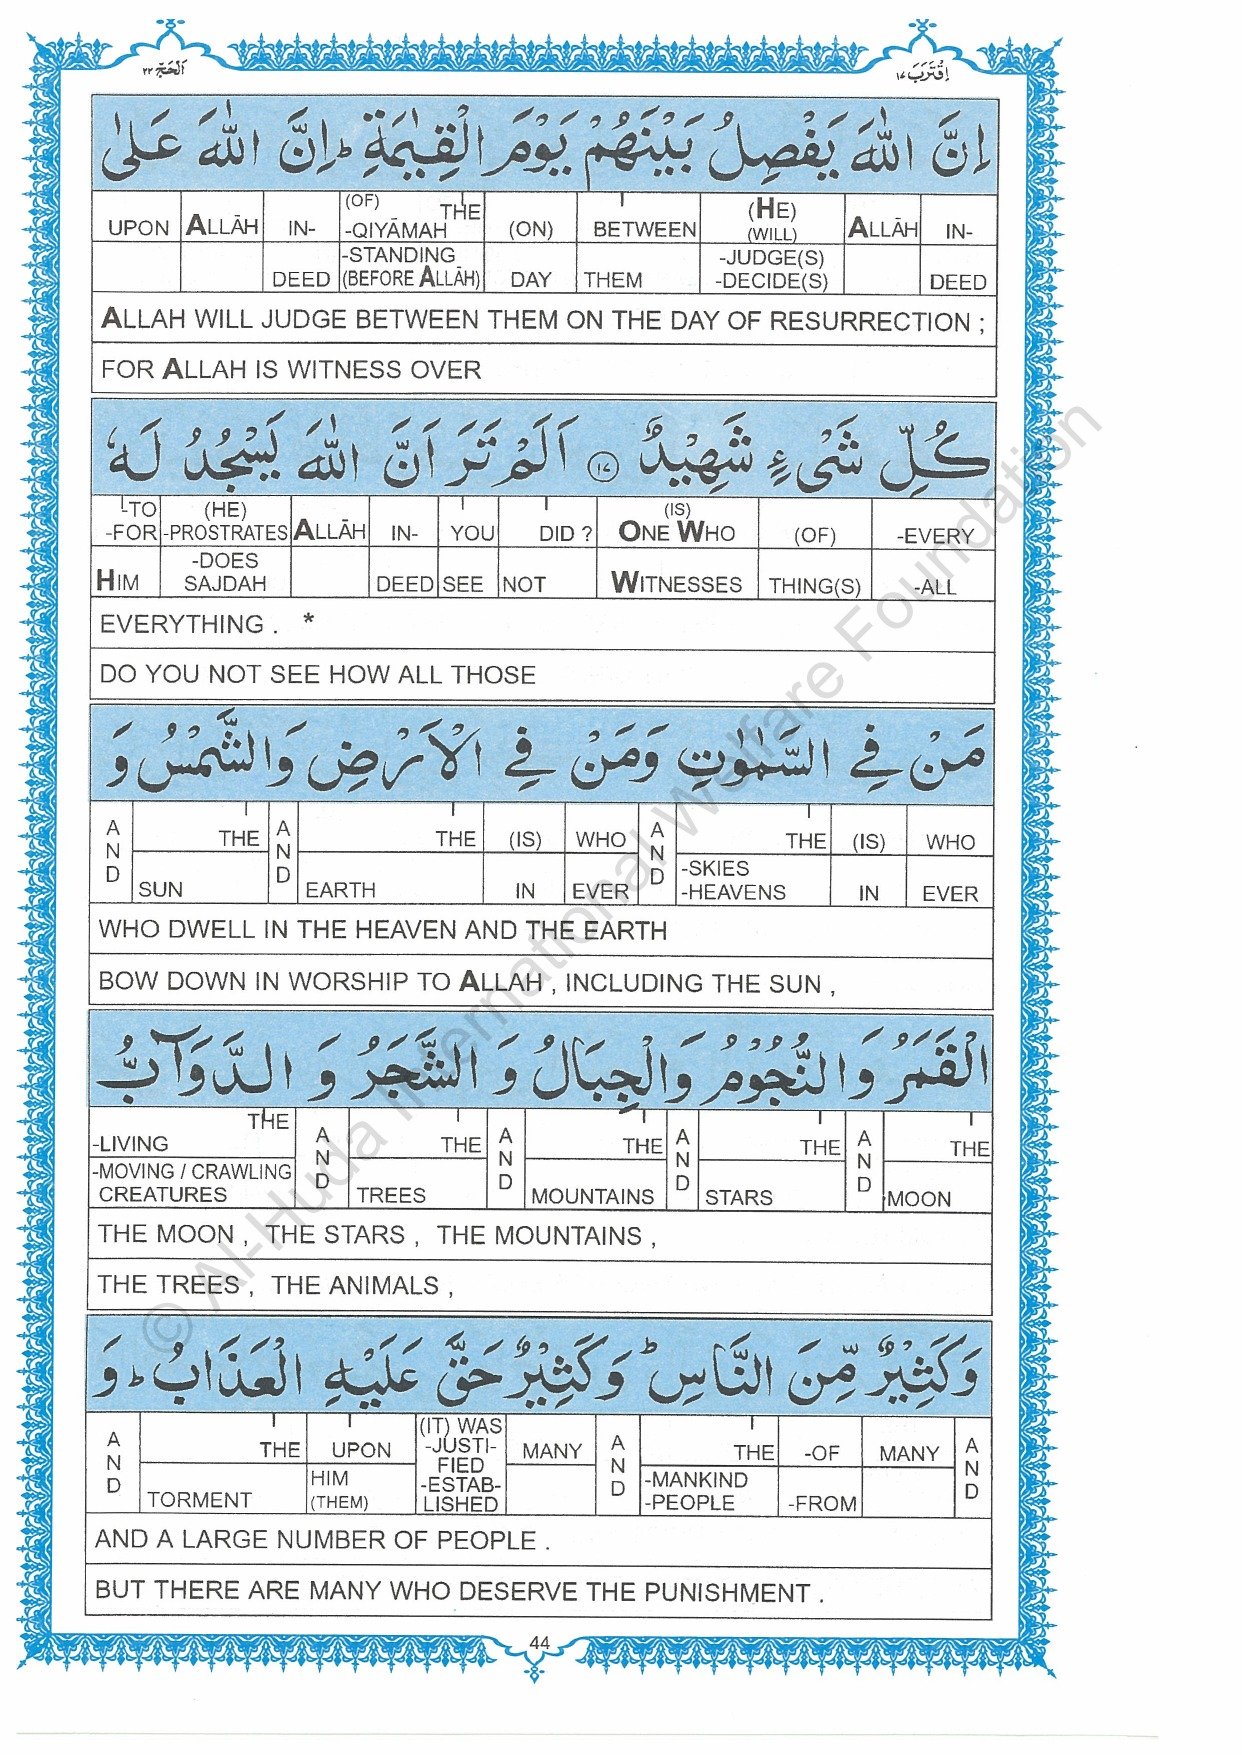 اَلْحَجّ ٢٢
اِقْتَرَبَ ١٧
اِنَّ اللّٰهَ يَفْصِلُ بَيْنَهُمْ يَوْمَ الْقِيٰمَةِ ؕ اِنَّ اللّٰهَ عَلٰى
UPON ALLĀH IN- (OF) THE -QIYĀMAH (ON) BETWEEN (HE) (WILL) ALLĀH IN-
DEED -STANDING (BEFORE ALLĀH) DAY THEM -JUDGE(S) -DECIDE(S) DEED
ALLAH WILL JUDGE BETWEEN THEM ON THE DAY OF RESURRECTION ;
FOR ALLAH IS WITNESS OVER
كُلِّ شَيْءٍ شَهِيْدٌ ١٧ اَلَمْ تَرَ اَنَّ اللّٰهَ يَسْجُدُ لَهٗ
-TO -FOR (HE) -PROSTRATES ALLĀH IN- YOU DID ? (IS) ONE WHO (OF) -EVERY
HIM -DOES SAJDAH DEED SEE NOT WITNESSES THING(S) -ALL
EVERYTHING . *
DO YOU NOT SEE HOW ALL THOSE
مَنْ فِي السَّمٰوٰتِ وَمَنْ فِي الْاَرْضِ وَالشَّمْسُ وَ
AND THE AND THE (IS) WHO AND THE (IS) WHO
SUN EARTH IN EVER -SKIES -HEAVENS IN EVER
WHO DWELL IN THE HEAVEN AND THE EARTH
BOW DOWN IN WORSHIP TO ALLAH , INCLUDING THE SUN ,
الْقَمَرُ وَالنُّجُوْمُ وَالْجِبَالُ وَ الشَّجَرُ وَ الدَّوَآبُّ
THE -LIVING AND THE AND THE AND THE AND THE
-MOVING / CRAWLING CREATURES TREES MOUNTAINS STARS MOON
THE MOON , THE STARS , THE MOUNTAINS ,
THE TREES , THE ANIMALS ,
وَكَثِيْرٌ مِّنَ النَّاسِ ؕ وَكَثِيْرٌ حَقَّ عَلَيْهِ الْعَذَابُ ؕ وَ
AND THE UPON (IT) WAS -JUSTI- FIED MANY AND THE -OF MANY AND
TORMENT HIM (THEM) -ESTAB- LISHED -MANKIND -PEOPLE -FROM
AND A LARGE NUMBER OF PEOPLE .
BUT THERE ARE MANY WHO DESERVE THE PUNISHMENT .
44
© Al-Huda International Welfare Foundation